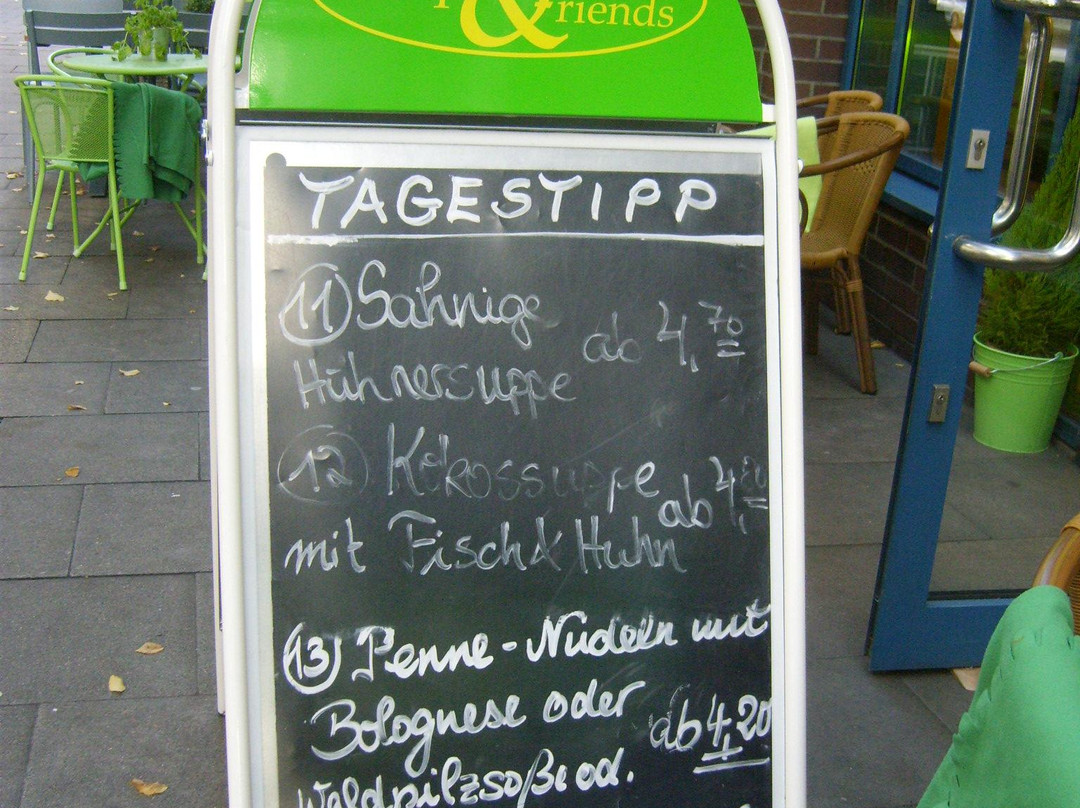 & riends
TAGESTIPP
11 Sahnige
Hühnersuppe ab 4,70
12 Kokossuppe
mit Fisch & Huhn ab 4,20
13 Penne-Nudeln mit
Bolognese oder
ab 4,20
Waldpilzsoße od.